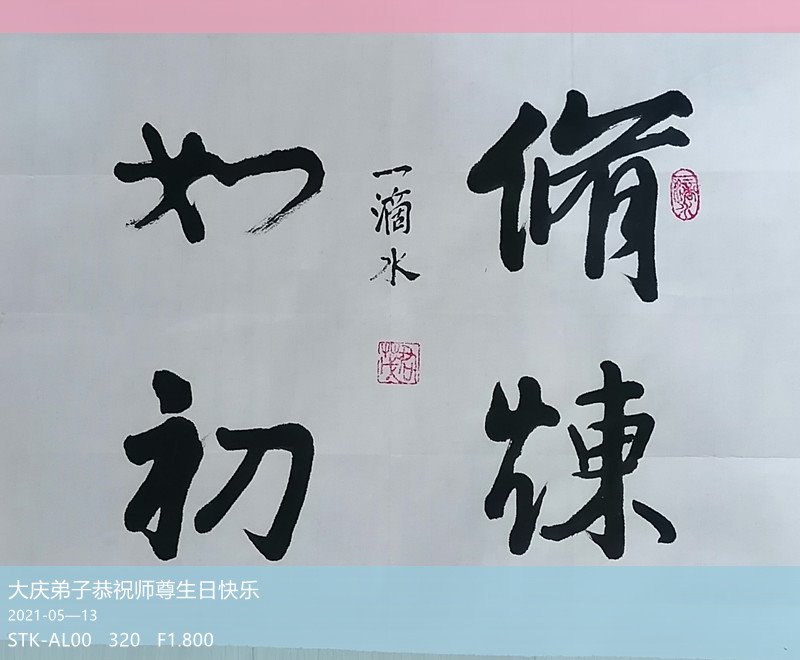 脩煉
如初
一滴水
大庆弟子恭祝师尊生日快乐
2021-05—13
STK-AL00 320 F1.800